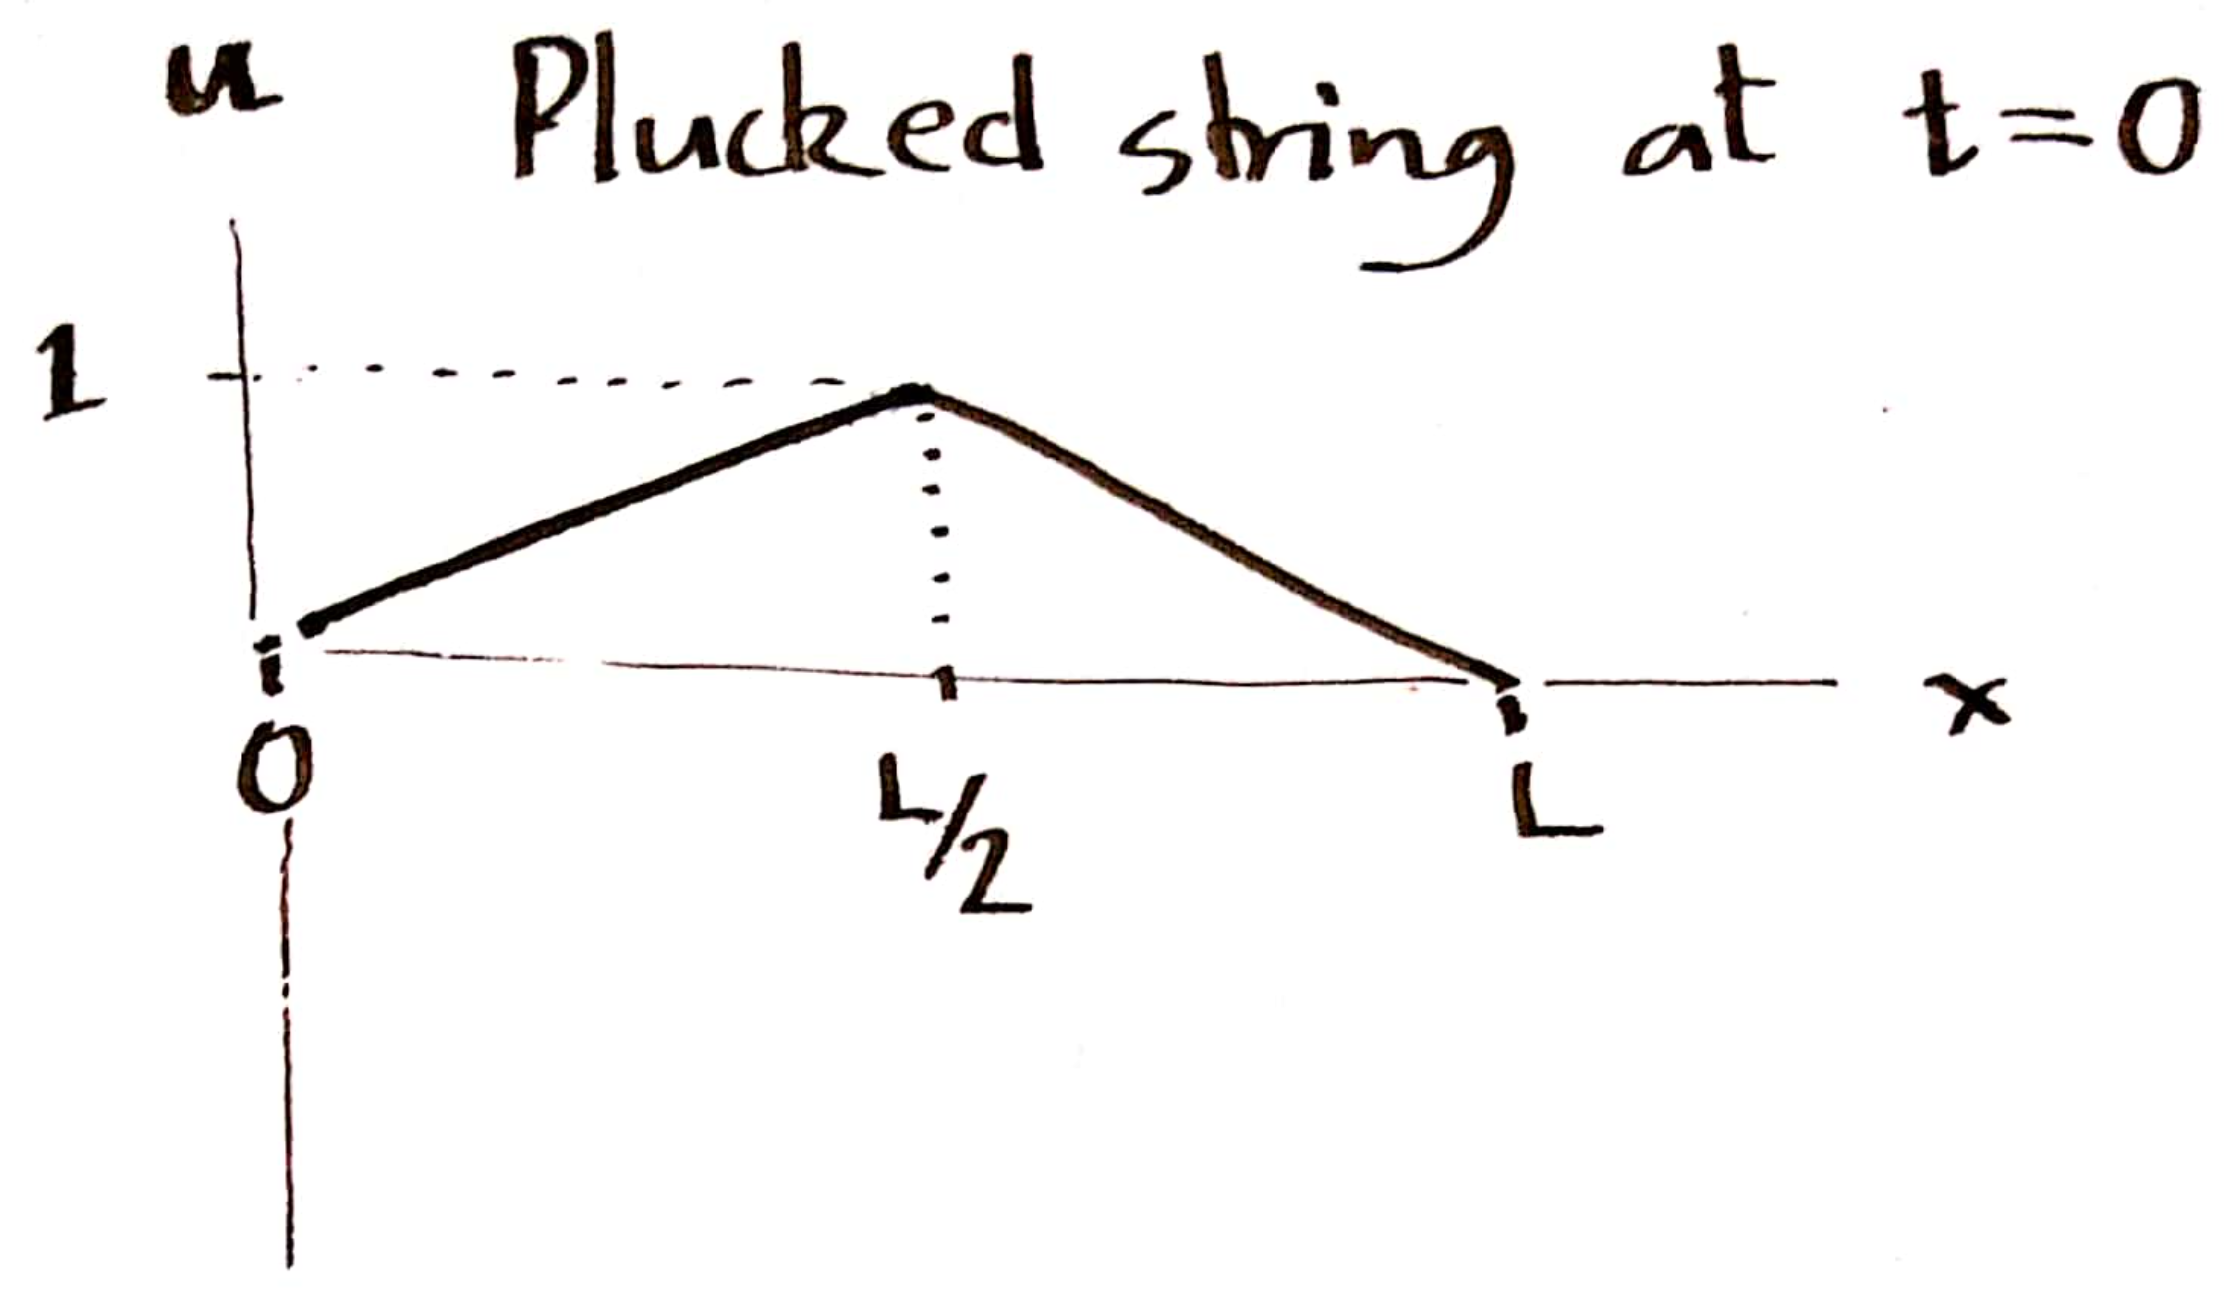 u Plucked string at t=0
1
x
0 L/2 L